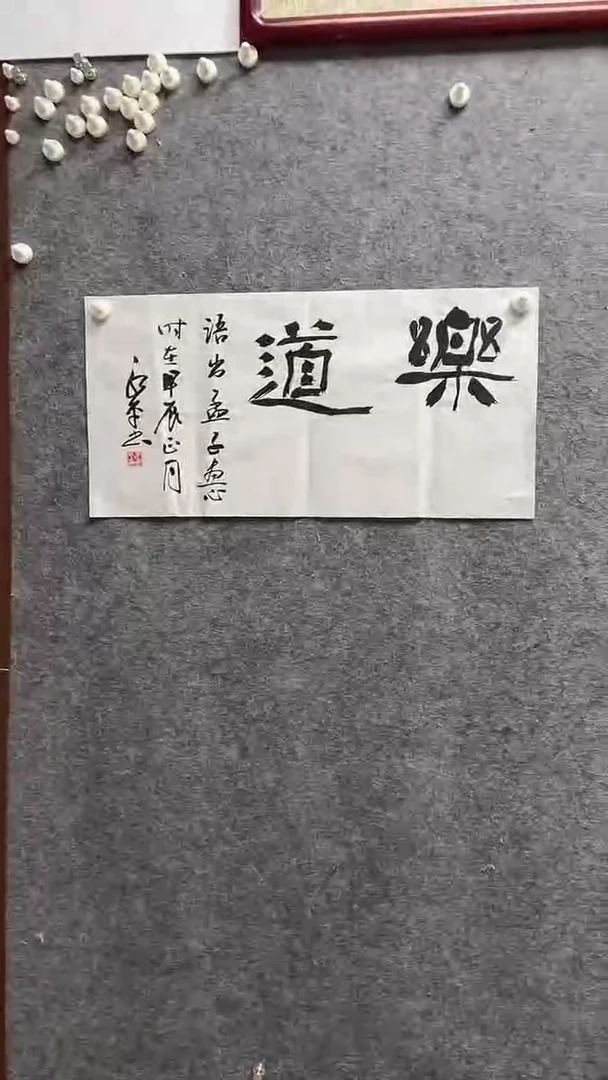 樂道
語出孟子尽心
时在甲辰正月